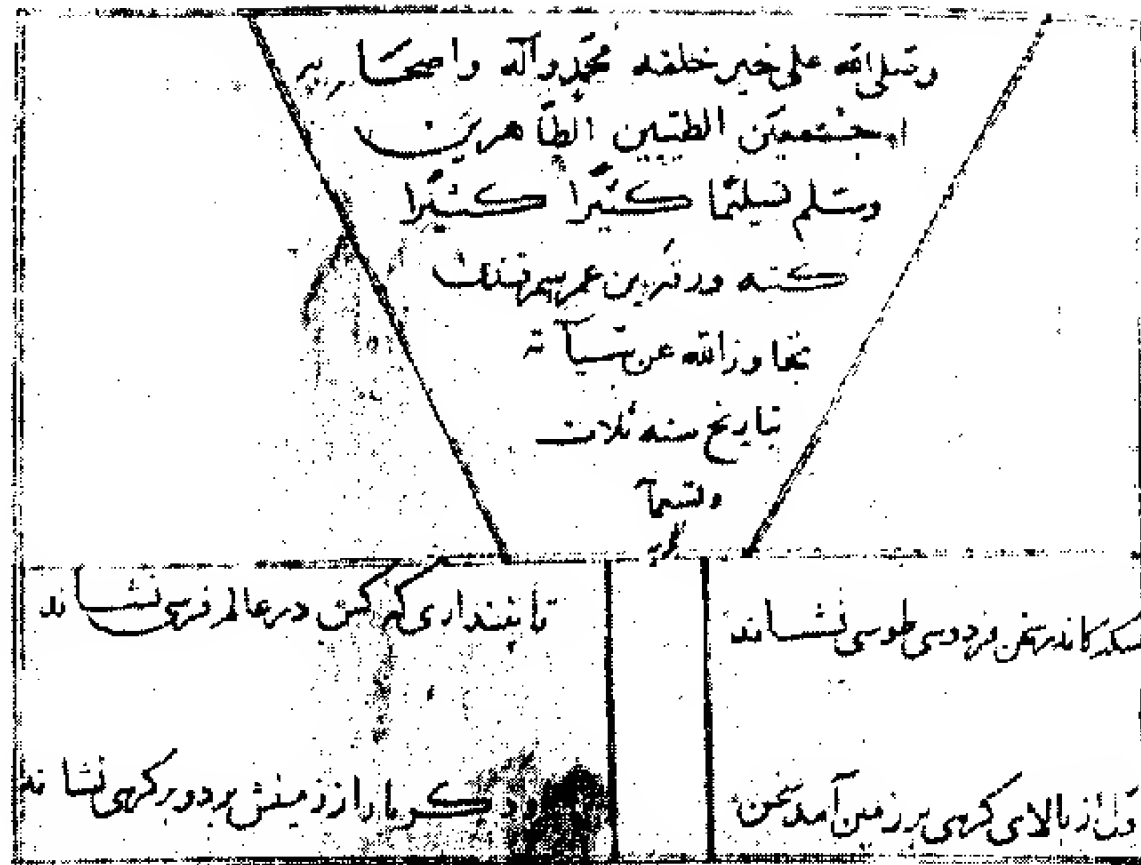 وصلى الله على خير خلقه محمد وآله واصحابه
اجمعين الطيبين الطاهرين
وسلم تسليما كثيرا كثيرا
كتبه ورقه بن عمر سمرقندى
تجاوز الله عن سيآته
بتاريخ سنه ثلاث
وتسعمآ
ئه
سکه کاندر سخن فردوسی طوسی نشاند تا نپنداری که کس در عالم فرسی نشاند
اول از بالای کرسی بر زمین آمد سخن دیکر بار از زمینش برد و بر کرسی نشاند